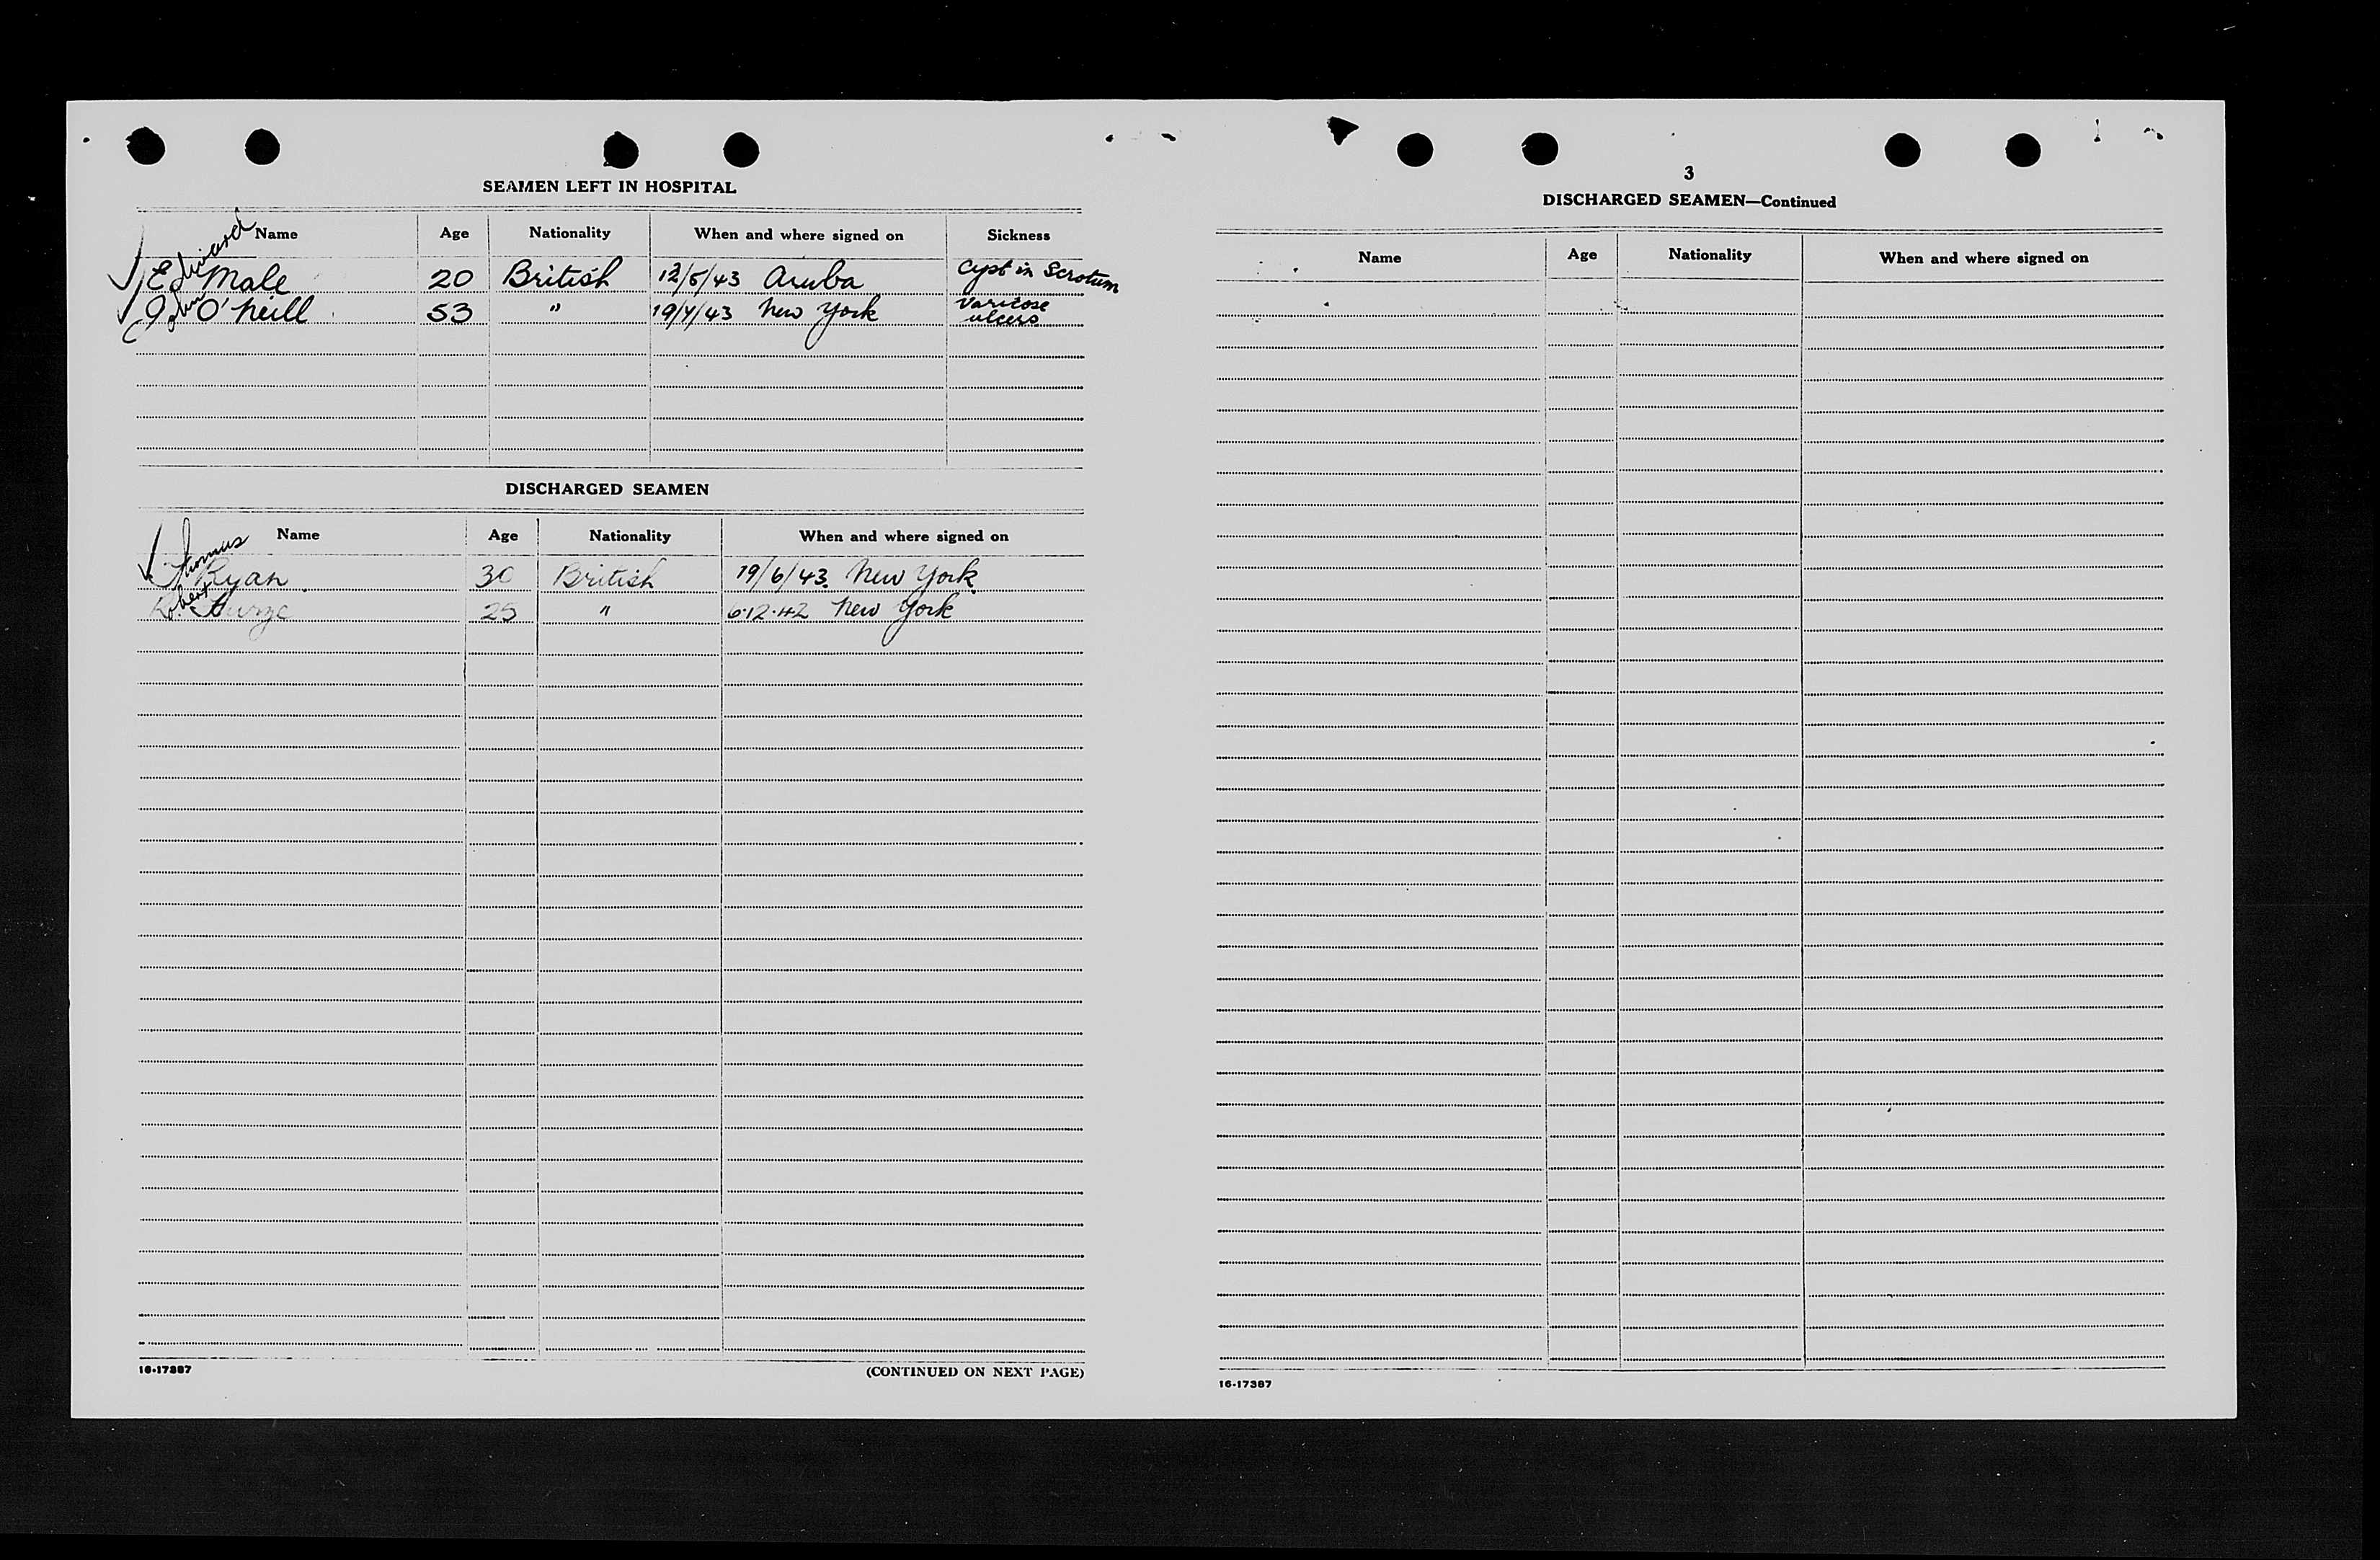 SEAMEN LEFT IN HOSPITAL
Name Age Nationality When and where signed on Sickness
Edward Male 20 British 12/5/43 Aruba Cyst in Scrotum
John O'Neill 53 " 19/4/43 New York Varicose
ulcers
DISCHARGED SEAMEN
Name Age Nationality When and where signed on
Thomas Ryan 30 British 19/6/43 New York
Robert 25 " 6.12.42 New York
16-17387
(CONTINUED ON NEXT PAGE)
3
DISCHARGED SEAMEN—Continued
Name Age Nationality When and where signed on
16-17387